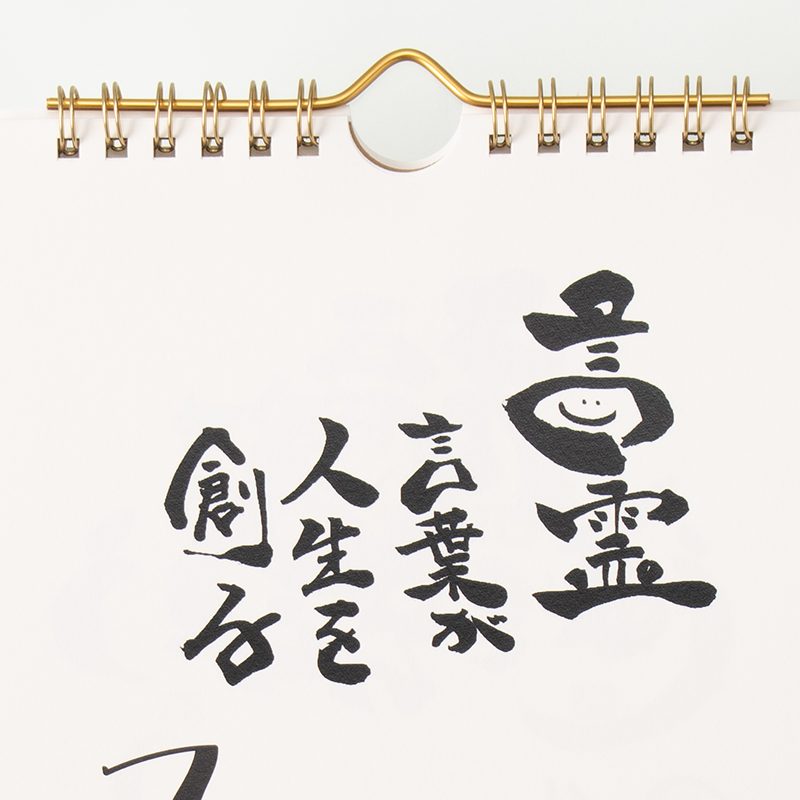 言霊
言葉が
人生を
創る